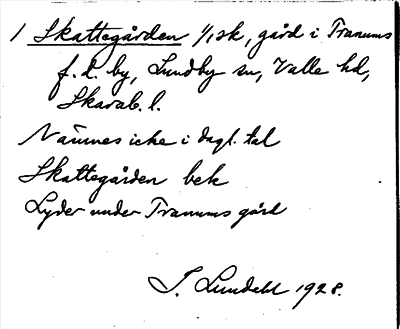 1 Skattegården 1/1 sk, gård i Tranums
f.d. by, Lundby sn, Valle hd,
Skarab. l.
Nämnes icke i dagl. tal
Skattegården bek
Lyder under Tranums gård
I. Lundahl 1928.